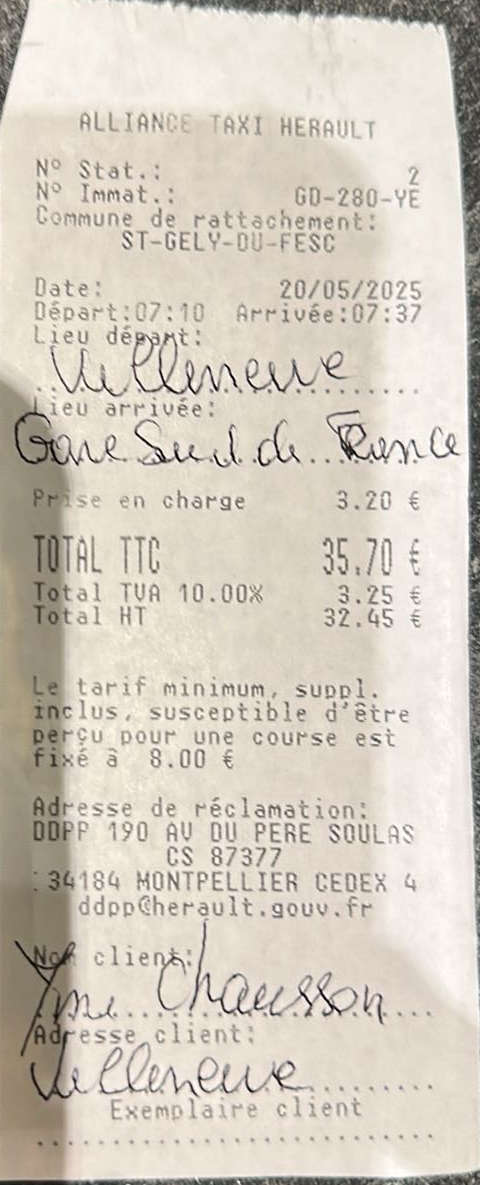 ALLIANCE TAXI HERAULT
N° Stat.: 2
N° Immat.: GD-280-YE
Commune de rattachement:
ST-GELY-DU-FESC
Date: 20/05/2025
Départ:07:10 Arrivée:07:37
Lieu départ:
Villeneuve
Lieu arrivée:
Gare Sud de France
Prise en charge 3.20 €
TOTAL TTC 35.70 €
Total TVA 10.00% 3.25 €
Total HT 32.45 €
Le tarif minimum, suppl.
inclus, susceptible d'être
perçu pour une course est
fixé à 8.00 €
Adresse de réclamation:
DDPP 190 AV DU PERE SOULAS
CS 87377
34184 MONTPELLIER CEDEX 4
ddpp@herault.gouv.fr
Nom client:
Mme Chausson
Adresse client:
Villeneuve
Exemplaire client